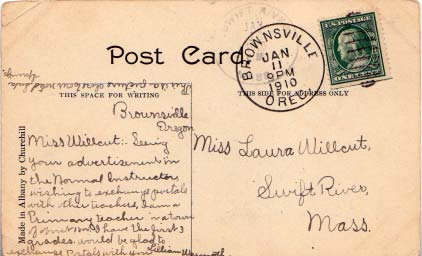 Post Card
BROWNSVILLE
JAN
11
8PM
1910
OREG.
U.S. POSTAGE
ONE CENT
THIS SPACE FOR WRITING
THIS SIDE FOR ADDRESS ONLY
This is a picture of our
Brownsville
Oregon
Miss Willcut:- Seeing
your advertisement in
the Normal Instructor
wishing to exchange postals
with other teachers, I am a
Primary teacher in a town
of have the first 3
grades. would be glad to
exchange Postals with you
Lillian
Miss Laura Willcut,
Swift River,
Mass.
Made in Albany by Churchill